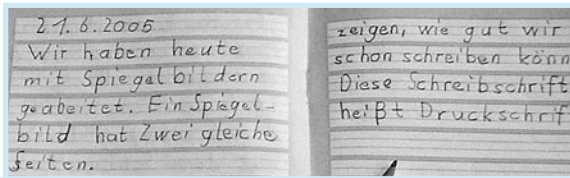 21.6.2005
Wir haben heute
mit Spiegelbildern
geabeitet. Ein Spiegel-
bild hat Zwei gleiche
seiten.
zeigen, wie gut wir
schon schreiben könn
Diese Schreibschrift
heißt Druckschrif